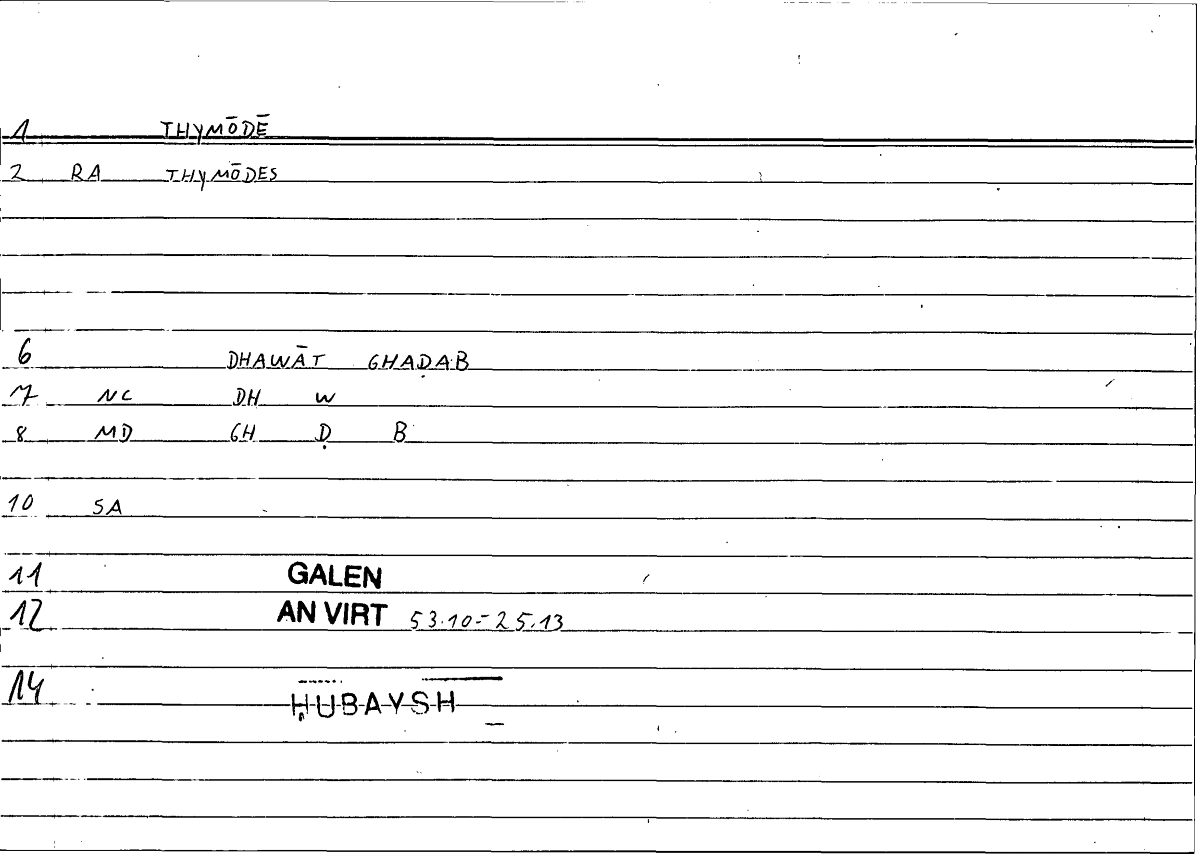 1 THYMŌDĒ
2 RA THYMŌDES
6 DHAWĀT GHAḌAB
7 NC DH W
8 MD GH Ḍ B
10 SA
11 GALEN
12 AN VIRT 53.10=25.13
14 ḤUBAYSH